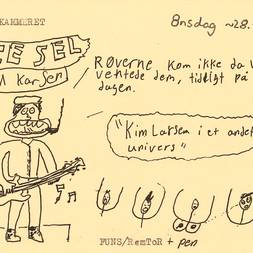 KAMMERET
Onsdag ~28.
EE SEL
M Karsen
Røverne, kom ikke da V
ventede dem, tidligt på
dagen.
"Kim Larsen i et andet
univers"
FUNS/RemToR + pen